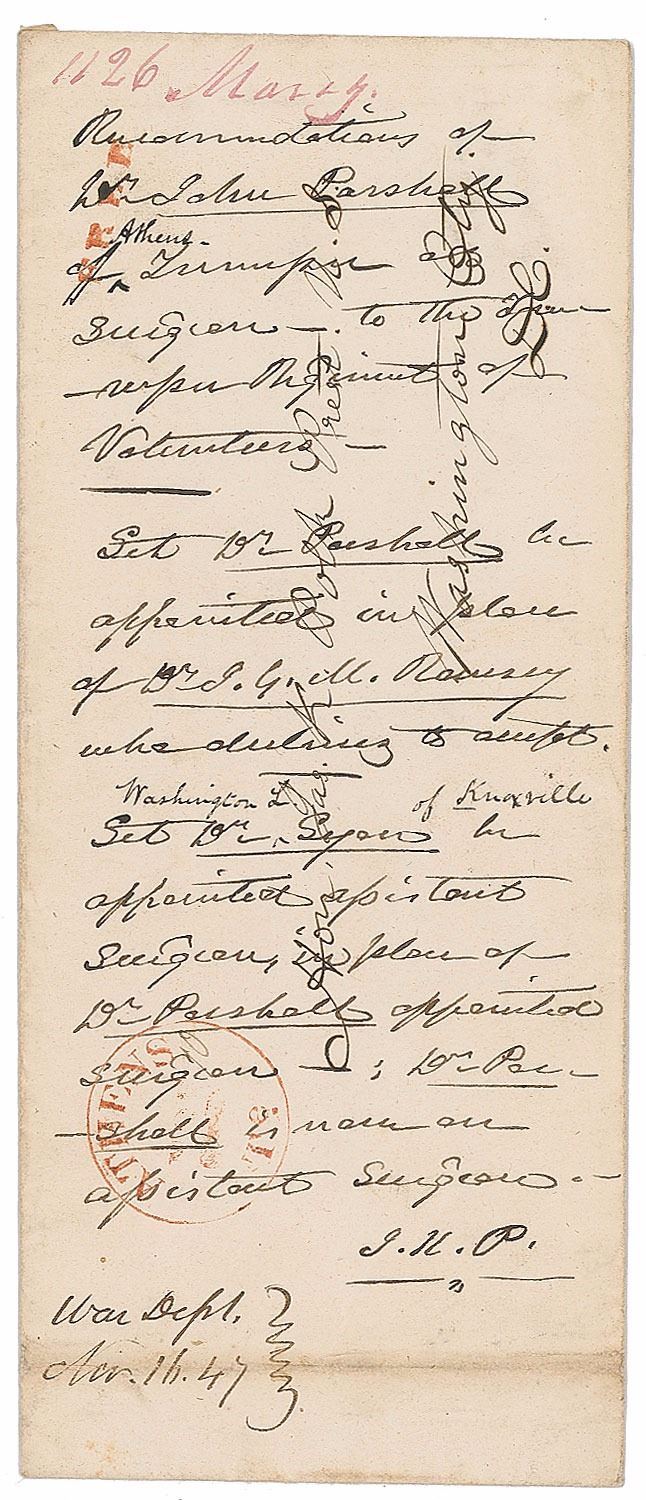 1126 Marcy.
Recommendations of
Dr John Parshall
Athens
of Tennessee as
surgeon - to the Tenn-
-essee Regiment of
Volunteers -
Let Dr Parshall be
appointed in place
of Dr J. G. M. Ramsey
who declines to accept.
Washington L. of Knoxville
Let Dr Lyon be
appointed assistant
surgeon, in place of
Dr Parshall appointed
surgeon - ; Dr Par-
-shall is now an
assistant surgeon -
J. K. P.
War Dept.
Nov. 16. 47
FREE
ATHENS
Hon. Jas. K Polk Prest U S
Washington City
D.C.